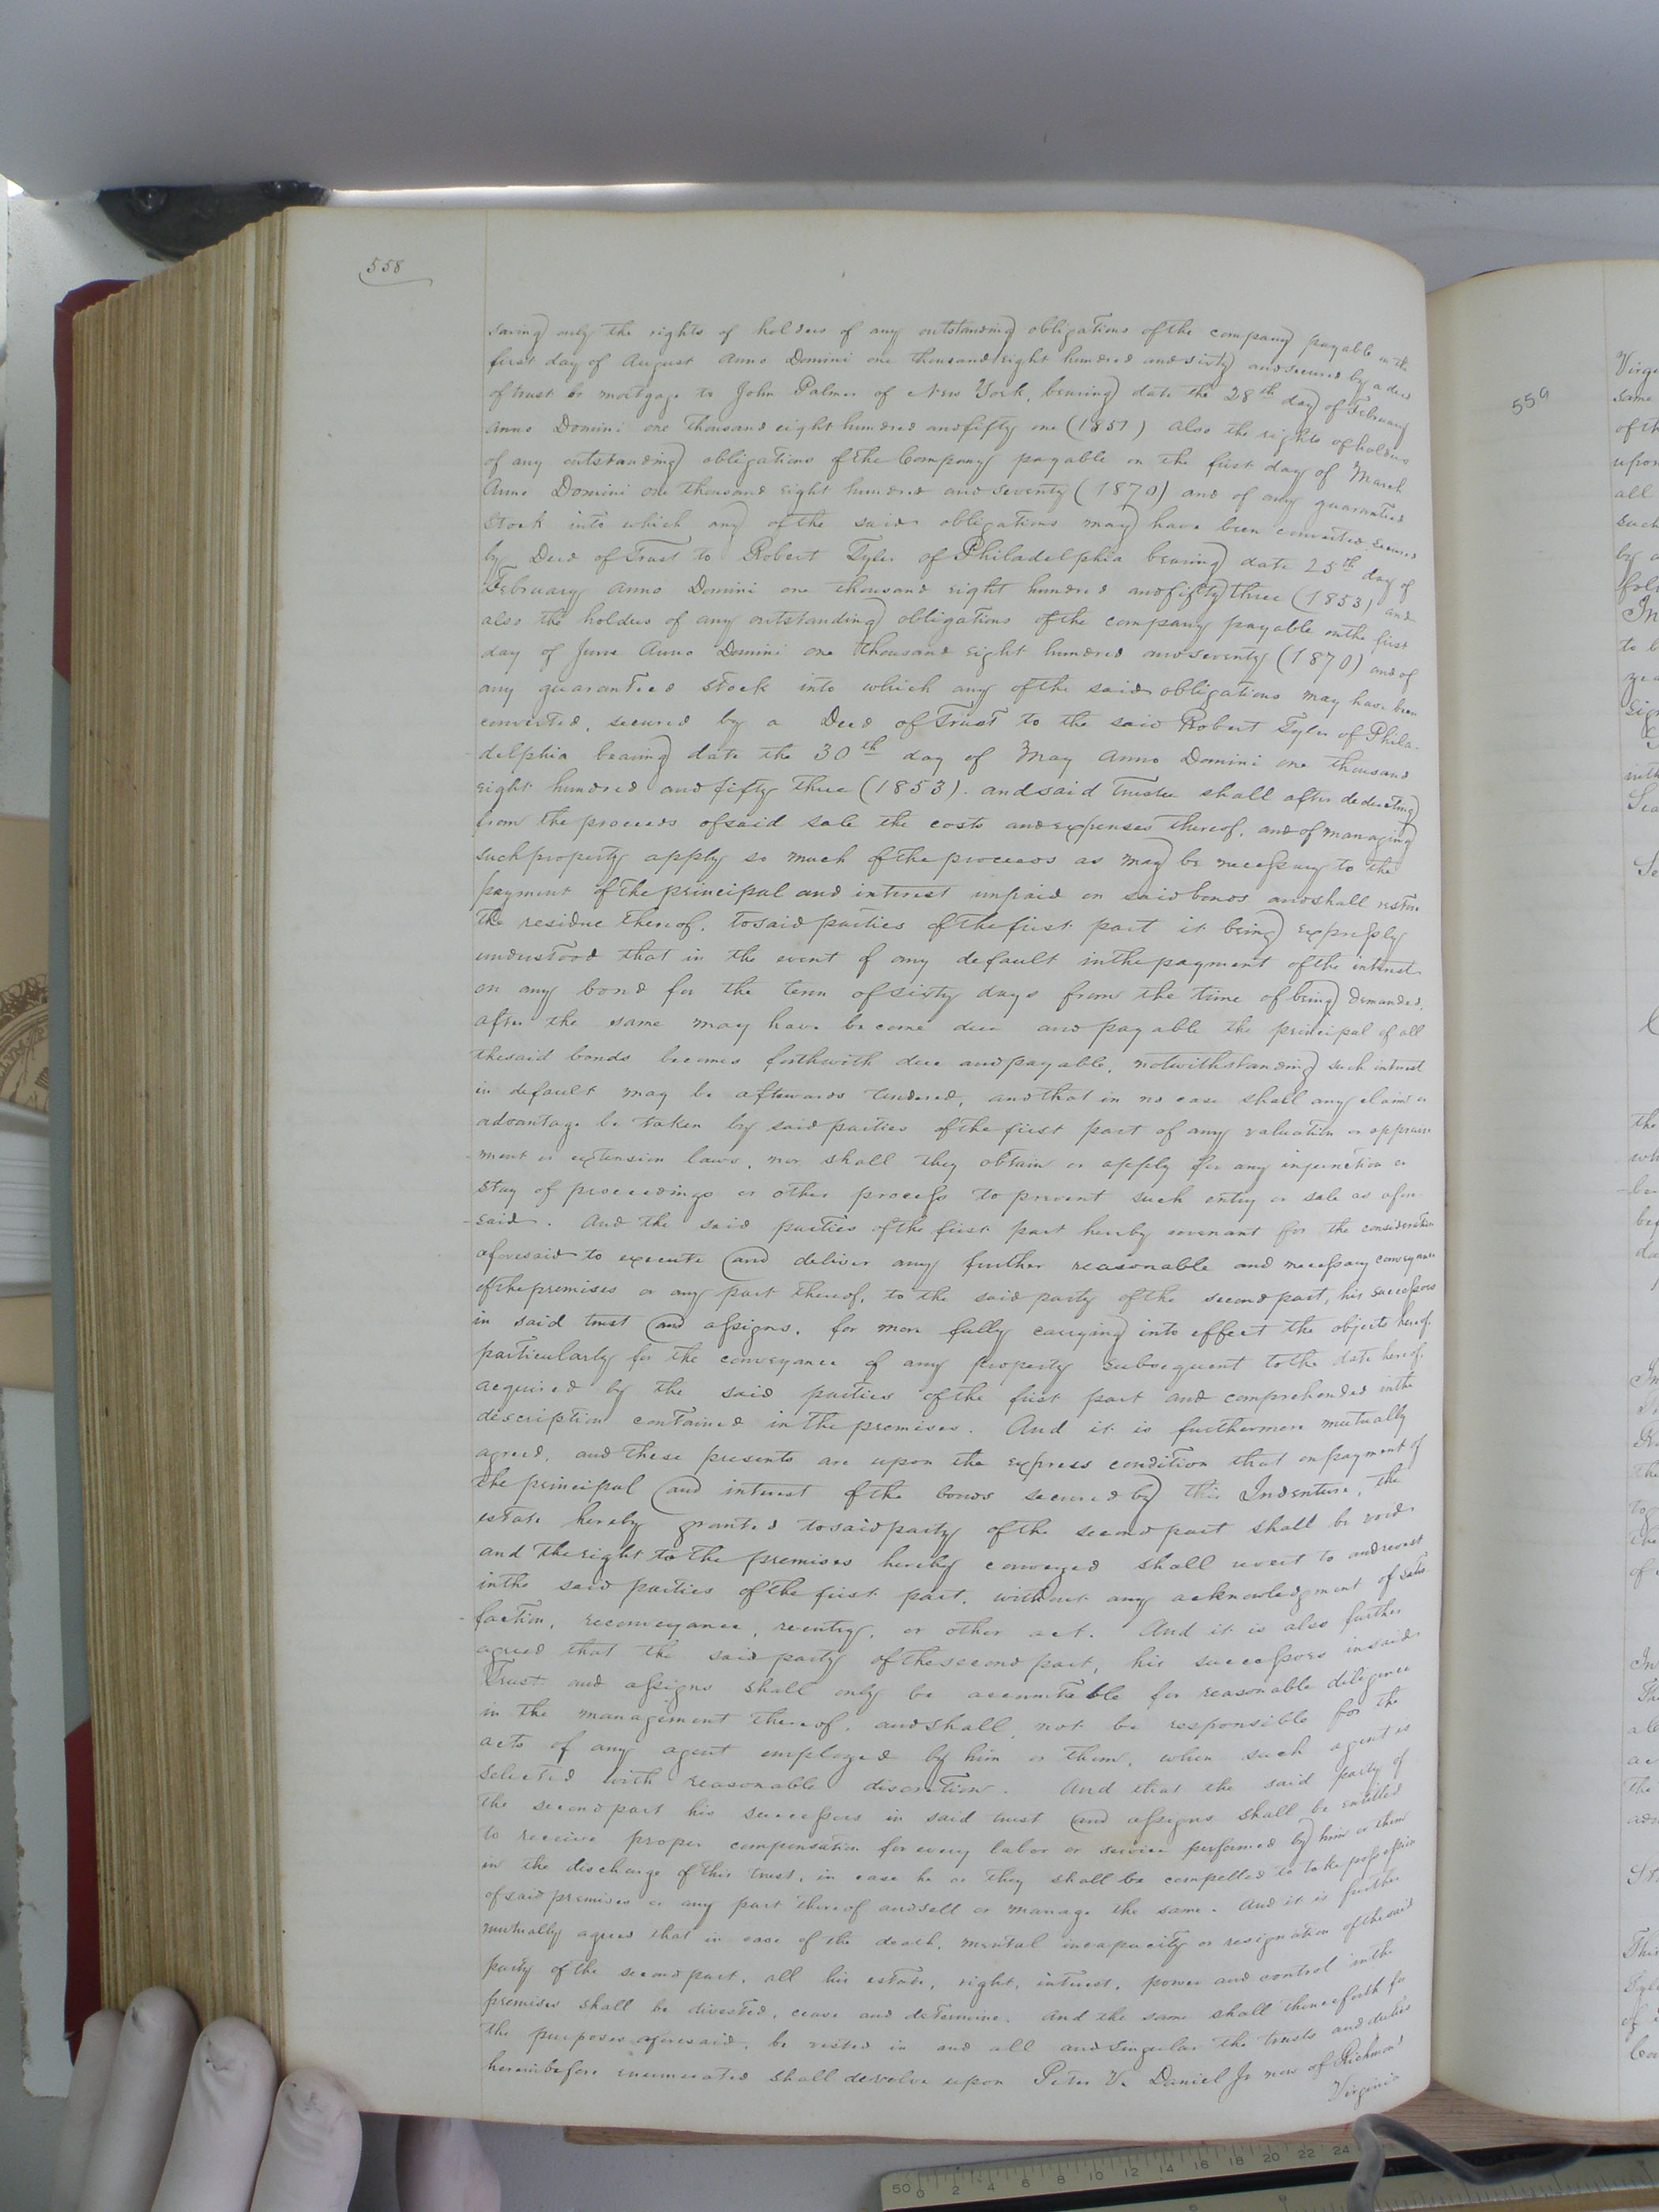 558
saving only the rights of holders of any outstanding obligations of the company payable on the
first day of August Anno Domini one thousand eight hundred and sixty and secured by a deed
of trust or mortgage to John Palmer of New York, bearing date the 28th day of February
Anno Domini one thousand eight hundred and fifty one (1851) also the rights of holders
of any outstanding obligations of the Company payable on the first day of March
Anno Domini one thousand eight hundred and seventy (1870) and of any guaranteed
Stock into which any of the said obligations may have been converted, secured
by Deed of Trust to Robert Tyler of Philadelphia bearing date 25th day of
February Anno Domini one thousand eight hundred and fifty three (1853) and
also the holders of any outstanding obligations of the company payable on the first
day of June Anno Domini one thousand eight hundred and seventy (1870) and of
any guaranteed Stock into which any of the said obligations may have been
converted, secured by a Deed of Trust to the said Robert Tyler of Phila-
delphia bearing date the 30th day of May Anno Domini one thousand
eight hundred and fifty three (1853). and said Trustee shall after deducting
from the proceeds of said sale the costs and expenses thereof, and of managing
such property apply so much of the proceeds as may be necessary to the
payment of the principal and interest unpaid on said bonds and shall restore
the residue thereof, to said parties of the first part it being expressly
understood that in the event of any default in the payment of the interest
on any bond for the term of sixty days from the time of being demanded,
after the same may have become due and payable the principal of all
the said bonds becomes forthwith due and payable, notwithstanding such interest
in default may be afterwards tendered, and that in no case shall any claim or
advantage be taken by said parties of the first part of any valuation or appraise
-ment or extension laws, nor shall they obtain or apply for any injunction or
Stay of proceedings or other process to prevent such entry or sale as afore-
-said. And the said parties of the first part hereby covenant for the consideration
aforesaid to execute and deliver any further reasonable and necessary conveyance
of the premises or any part thereof, to the said party of the second part, his successors
in said trust and assigns, for more fully carrying into effect the objects hereof
particularly for the conveyance of any property subsequent to the date hereof
acquired by the said parties of the first part and comprehended in the
description contained in the premises. And it is furthermore mutually
agreed, and these presents are upon the express condition that on payment of
the principal and interest of the bonds secured by this Indenture, the
estate hereby granted to said party of the second part shall be void
and the right to the premises hereby conveyed shall revert to and revest
in the said parties of the first part, without any acknowledgment of satis
-faction, reconveyance, reentry, or other act. And it is also further
agreed that the said party of the second part, his successors in said
Trust and assigns shall only be accountable for reasonable diligence
in the management thereof, and shall not be responsible for the
acts of any agent employed by him or them, when such agent is
selected with reasonable discretion. And that the said party of
the second part his successors in said trust and assigns shall be entitled
to receive proper compensation for every labor or service performed by him or them
in the discharge of this trust, in case he or they shall be compelled to take possession
of said premises or any part thereof and sell or manage the same. And it is further
mutually agreed that in case of the death, mental incapacity or resignation of the said
party of the second part, all his estate, right, interest, power and control in the
premises shall be divested, cease and determine. And the same shall thenceforth for
the purposes aforesaid, be vested in and all and singular the trusts and duties
hereinbefore enumerated shall devolve upon Peter V. Daniel Jr now of Richmond
Virginia
559
50 0 2 4 6 8 10 12 14 16 18 20 22 24